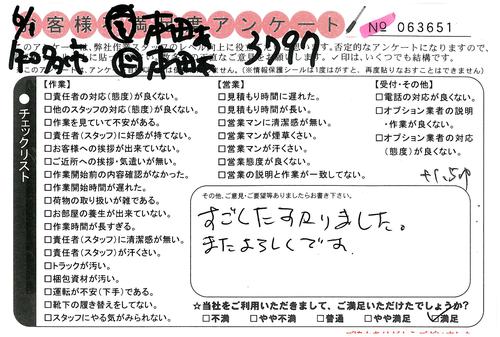 お客様満足度アンケート
№ 063651
6/1
3797
このアンケートは、弊社作業スタッフのレベル向上に役立
否定的なアンケートになりますので、
✓印は、いくつでも結構です。
(※情報保護シールは1度はがすと、再度貼りなおすことはできません)
チェックリスト
【作業】
□責任者の対応(態度)が良くない。
□他のスタッフの対応(態度)が良くない。
□作業を見ていて不安がある。
□責任者(スタッフ)に好感が持てない。
□お客様への挨拶が出来ていない。
□ご近所への挨拶・気遣いが無い。
□作業開始前の内容確認がなかった。
□作業開始時間が遅れた。
□荷物の取り扱いが雑である。
□お部屋の養生が出来ていない。
□作業時間が長すぎる。
□責任者(スタッフ)に清潔感が無い。
□責任者(スタッフ)が汗くさい。
□トラックが汚い。
□梱包資材が汚い。
□運転が不安(下手)である。
□靴下の履き替えをしてない。
□スタッフにやる気がみられない。
【営業】
□見積もり時間に遅れた。
□見積もり時間が長い。
□営業マンに清潔感が無い。
□営業マンが煙草くさい。
□営業マンが汗くさい。
□営業態度が良くない。
□営業の説明と作業が一致してない。
【受付・その他】
□電話の対応が良くない。
□オプション業者の説明
・作業が良くない。
□オプション業者の対応
(態度)が良くない。
その他、ご意見・ご要望等ありましたらお書き下さい。
すごくたすかりました。
またよろしくです。
☆当社をご利用いただきまして、ご満足いただけたでしょうか?
□不満 □やや不満 □普通 □やや満足 ☑満足